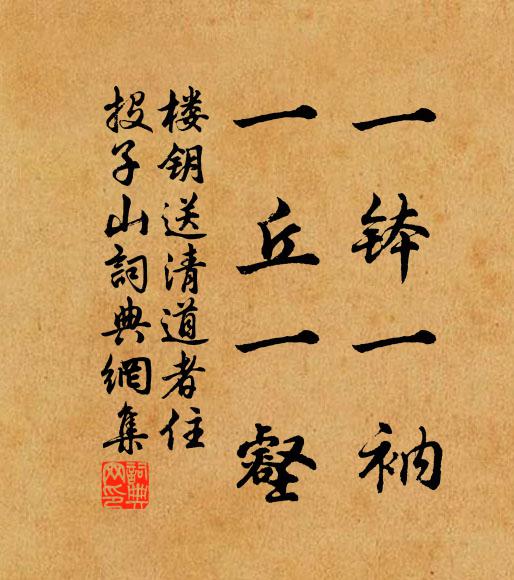 一钵一衲
一丘一壑
楼钥送清道者住
投子山詞典網集
詞典网印